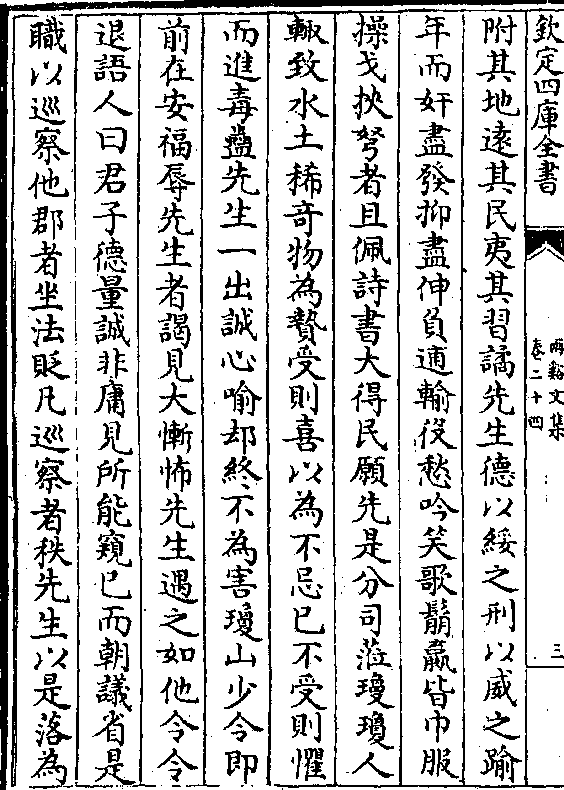 欽定四庫全書
兩谿文集
卷二十四
三
附其地遠其民夷其習譎先生德以綏之刑以威之踰
年而奸盡發抑盡伸負逋輸役愁吟笑歌鬅鸁皆巾服
操戈挾弩者且佩詩書大得民願先是分司蒞瓊瓊人
輙致水土稀奇物為贄受則喜以為不忌已不受則懼
而進毒蠱先生一出誠心喻却終不為害瓊山少令即
前在安福辱先生者謁見大慚怖先生遇之如他令令
退語人曰君子德量誠非庸見所能窺已而朝議省是
職以巡察他郡者坐法貶凡巡察者秩先生以是落為